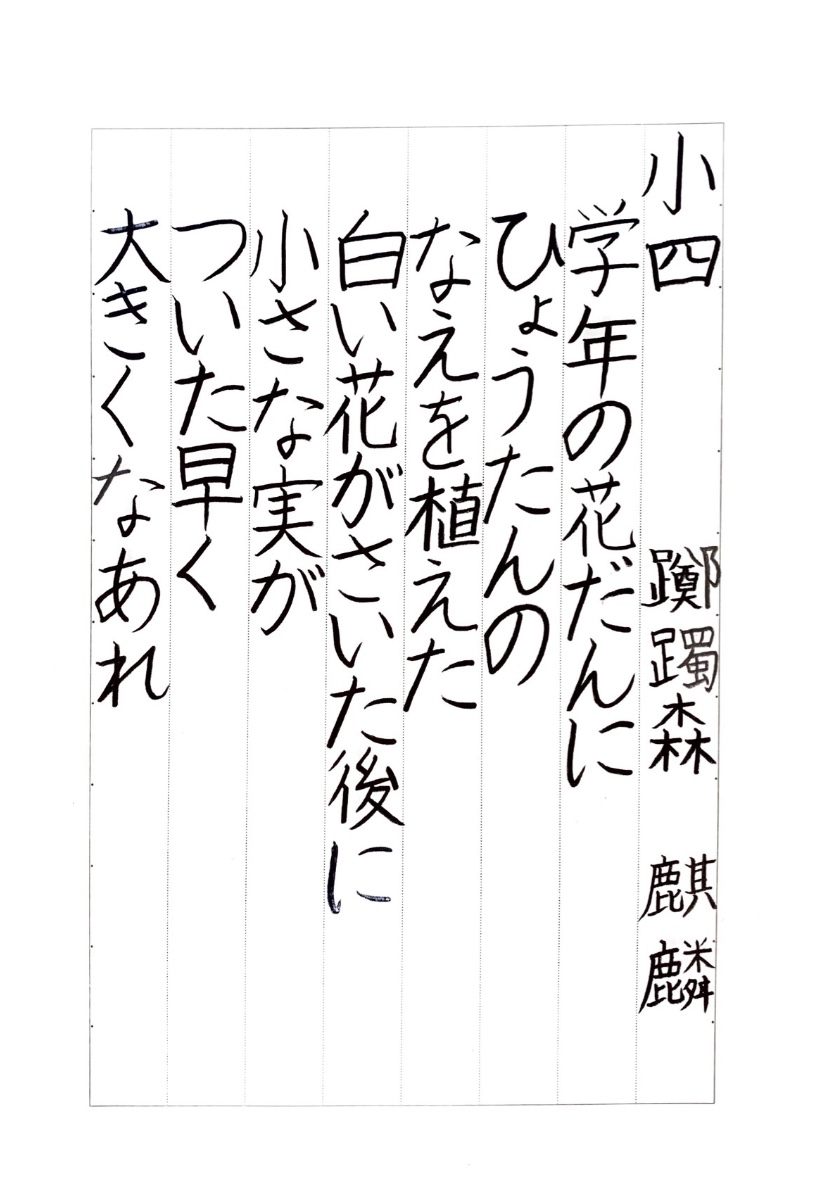 小四 躑躅森 麒麟
学年の花だんに
ひょうたんの
なえを植えた
白い花がさいた後に
小さな実が
ついた早く
大きくなあれ